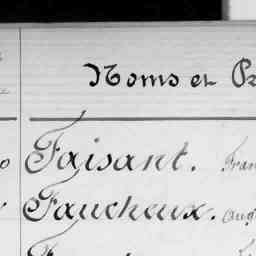 Noms et Pr
Faisant. Fran
Faucheux. Aug